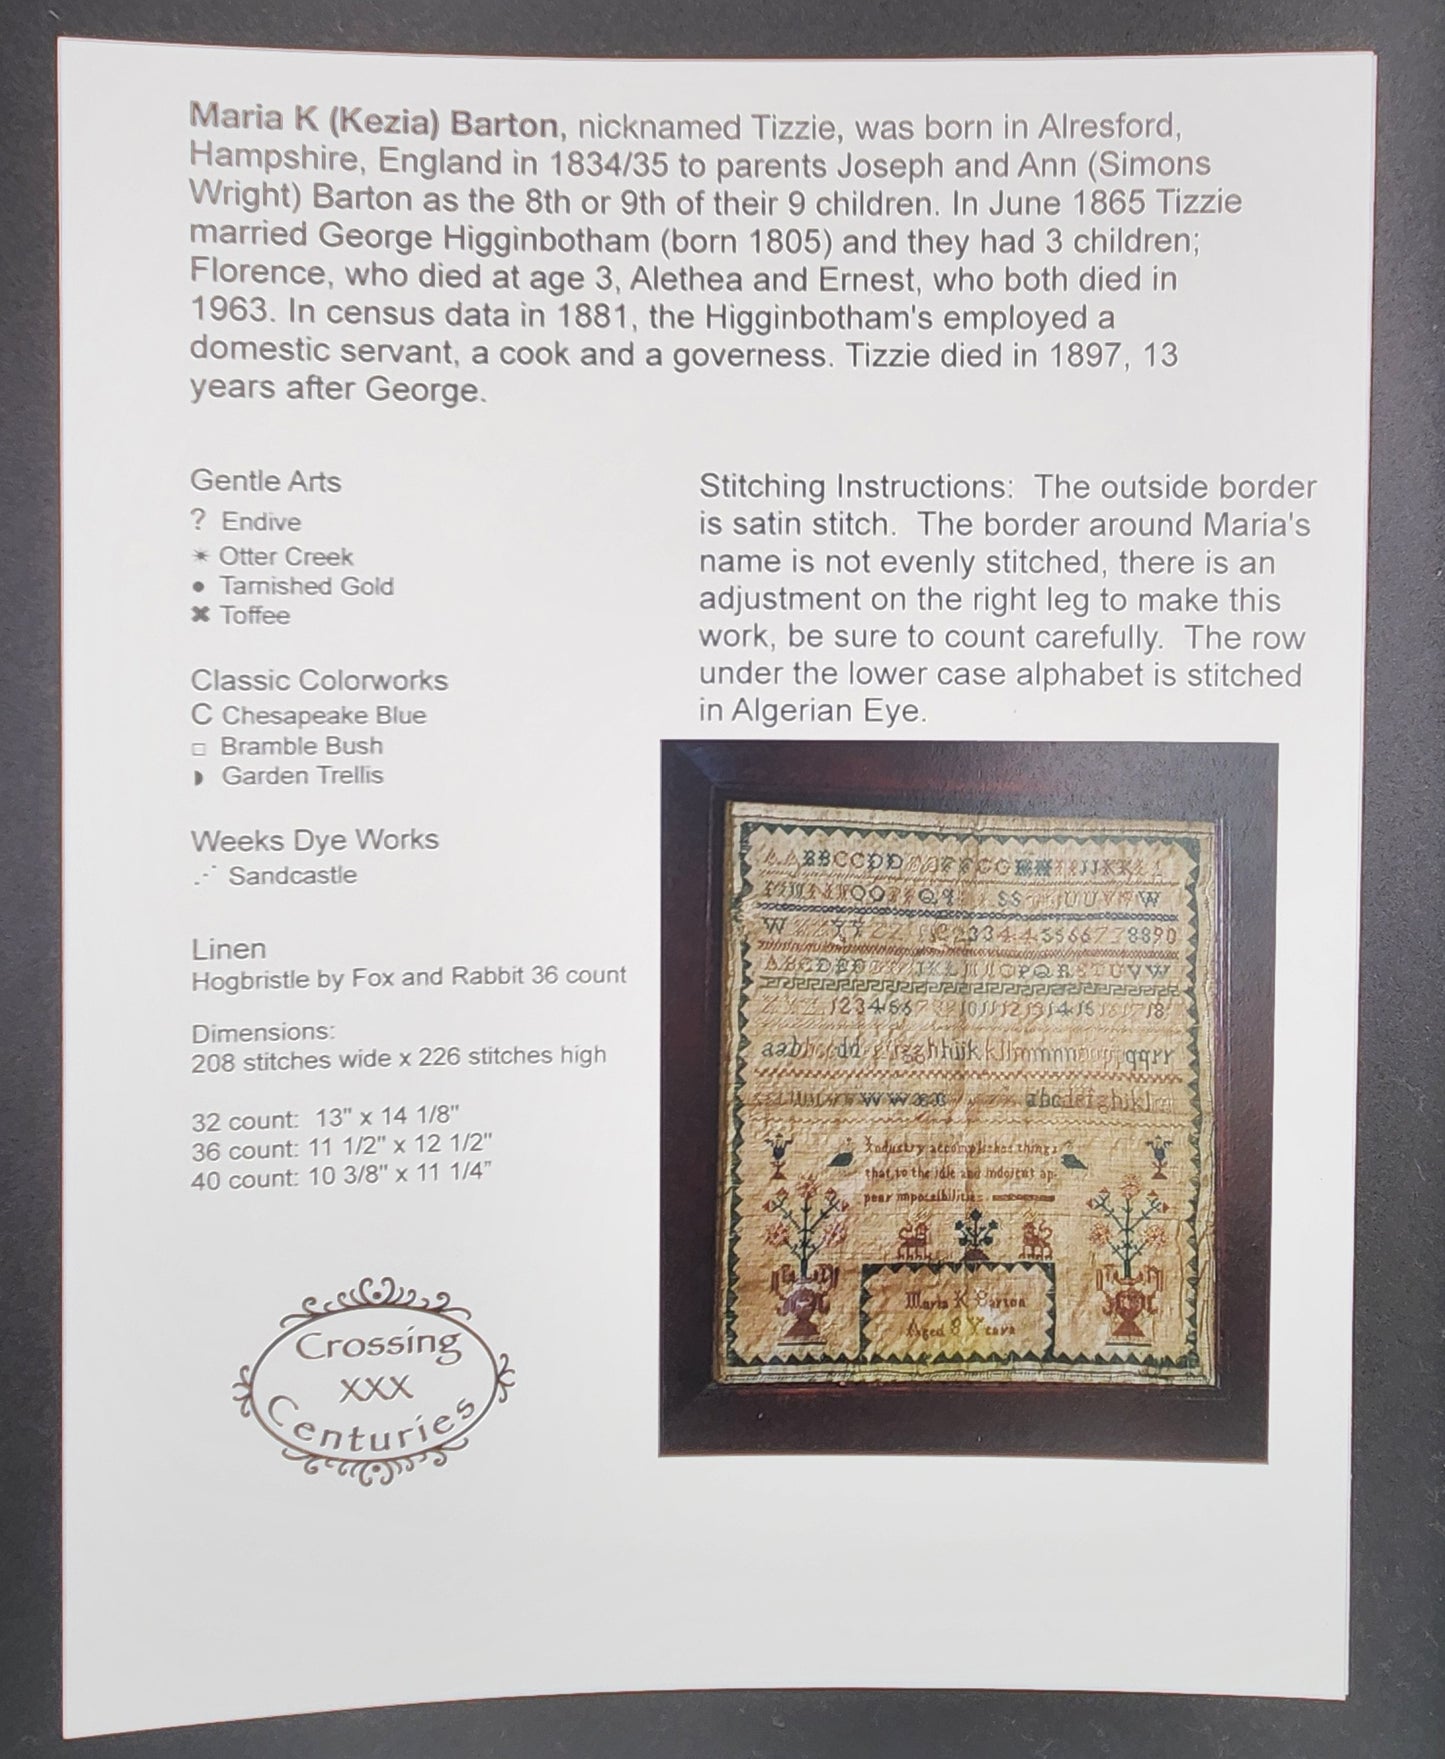 Maria K (Kezia) Barton, nicknamed Tizzie, was born in Alresford,
Hampshire, England in 1834/35 to parents Joseph and Ann (Simons
Wright) Barton as the 8th or 9th of their 9 children. In June 1865 Tizzie
married George Higginbotham (born 1805) and they had 3 children;
Florence, who died at age 3, Alethea and Ernest, who both died in
1963. In census data in 1881, the Higginbotham's employed a
domestic servant, a cook and a governess. Tizzie died in 1897, 13
years after George.
Gentle Arts
? Endive
✷ Otter Creek
● Tarnished Gold
✖ Toffee
Classic Colorworks
C Chesapeake Blue
□ Bramble Bush
◗ Garden Trellis
Weeks Dye Works
⋰ Sandcastle
Linen
Hogbristle by Fox and Rabbit 36 count
Dimensions:
208 stitches wide x 226 stitches high
32 count: 13" x 14 1/8"
36 count: 11 1/2" x 12 1/2"
40 count: 10 3/8" x 11 1/4"
Crossing
XXX
Centuries
Stitching Instructions: The outside border
is satin stitch. The border around Maria's
name is not evenly stitched, there is an
adjustment on the right leg to make this
work, be sure to count carefully. The row
under the lower case alphabet is stitched
in Algerian Eye.
Industry accomplishes things
that to the idle and indolent ap-
pear impossibilities.
Maria K Barton
Aged 8 Years